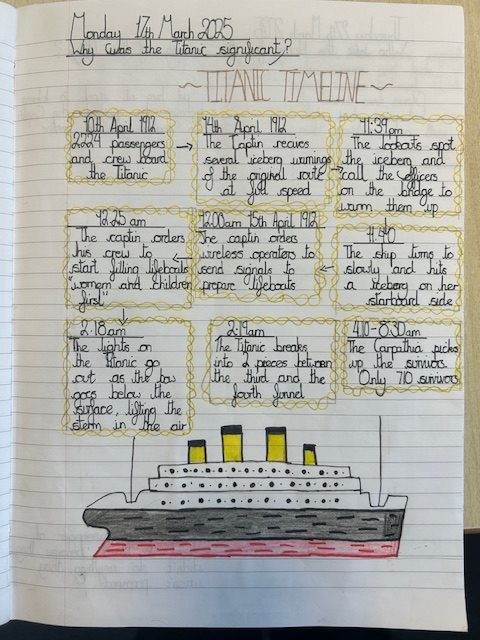 Monday 17th March 2025
Why was the Titanic significant?
~TITANIC TIMELINE~
10th April 1912
2224 passengers
and crew board
the Titanic
14th April 1912
The Captin recives
several iceberg warnings
of the original route
at full speed
11:39pm
The lookouts spot
the iceberg and
call the officers
on the bridge to
warm them up
11:40
The ship turns to
slowly and hits
a Iceberg on her
starboard side
12:00am 15th April 1912
The captin orders
wireless operaters to
send signals to
prepare lifeboats
12:25am
The captin orders
his crew to
start filling lifeboats
"women and children
first"
2:18am
The lights on
the Titanic go
out as the bow
goes below the
surface, lifting the
stern in the air
2:19am
The Titanic breaks
into 2 pieces between
the third and the
fourth funnel
4:10-8:30am
The Carpathia picks
up the survivors.
Only 710 survivors